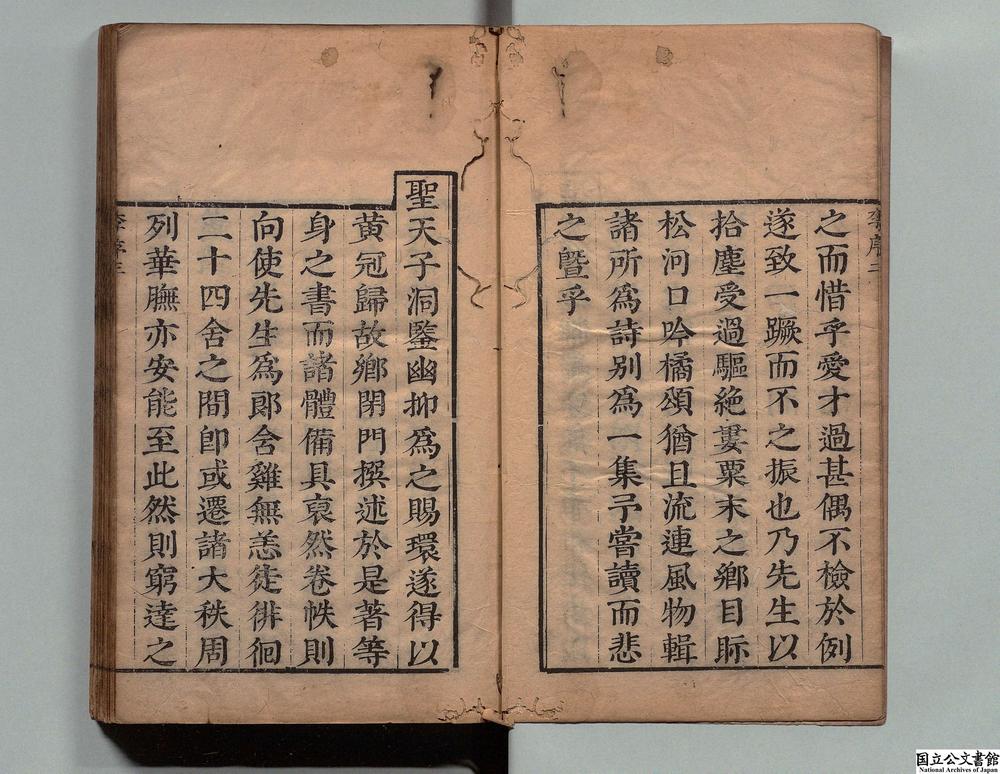 之而惜乎愛才過甚偶不檢於例
遂致一蹶而不之振也乃先生以
拾塵受過驅絶婁粟末之鄉目眎
松河口吟橘頌猶且流連風物輯
諸所爲詩别爲一集予嘗讀而悲
之曁乎
聖天子洞鑒幽抑爲之賜環遂得以
黄冠歸故鄉閉門撰述於是著等
身之書而諸體備具裒然卷帙則
向使先生爲郎舍雞無恙徒徘徊
二十四舍之間卽或遷諸大秩周
列華膴亦安能至此然則窮達之
国立公文書館
National Archives of Japan